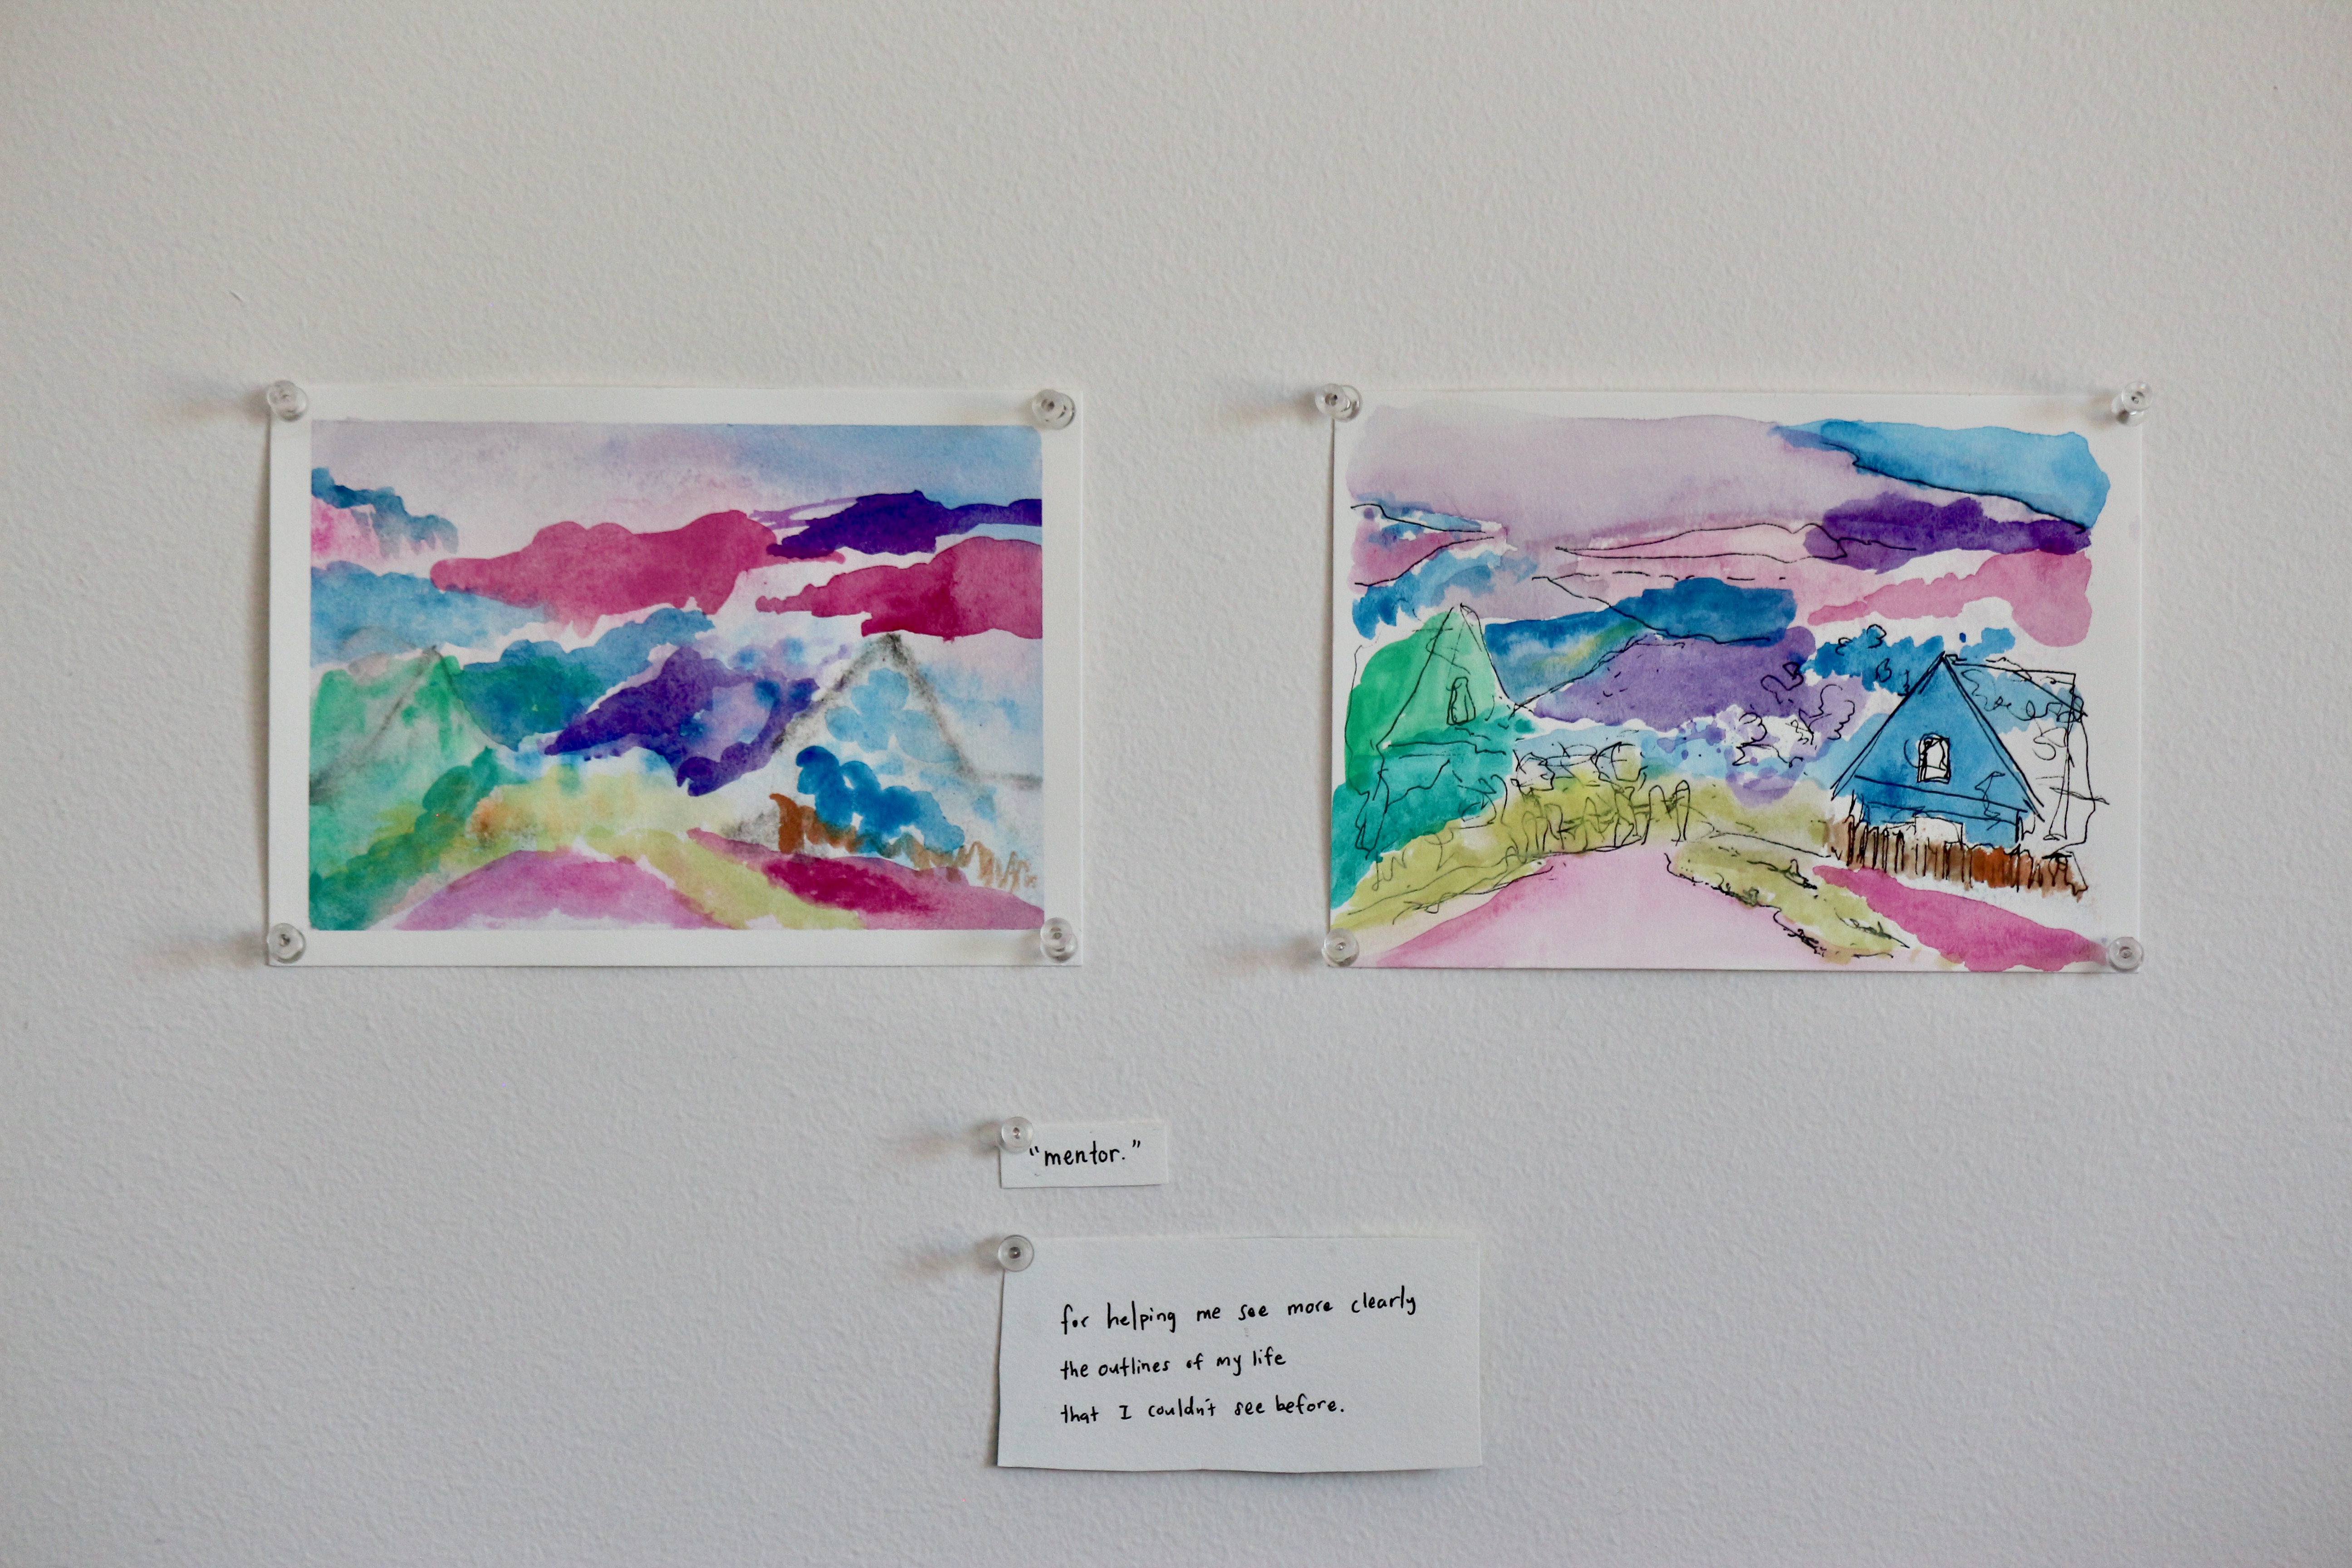 "mentor."
for helping me see more clearly
the outlines of my life
that I couldn't see before.